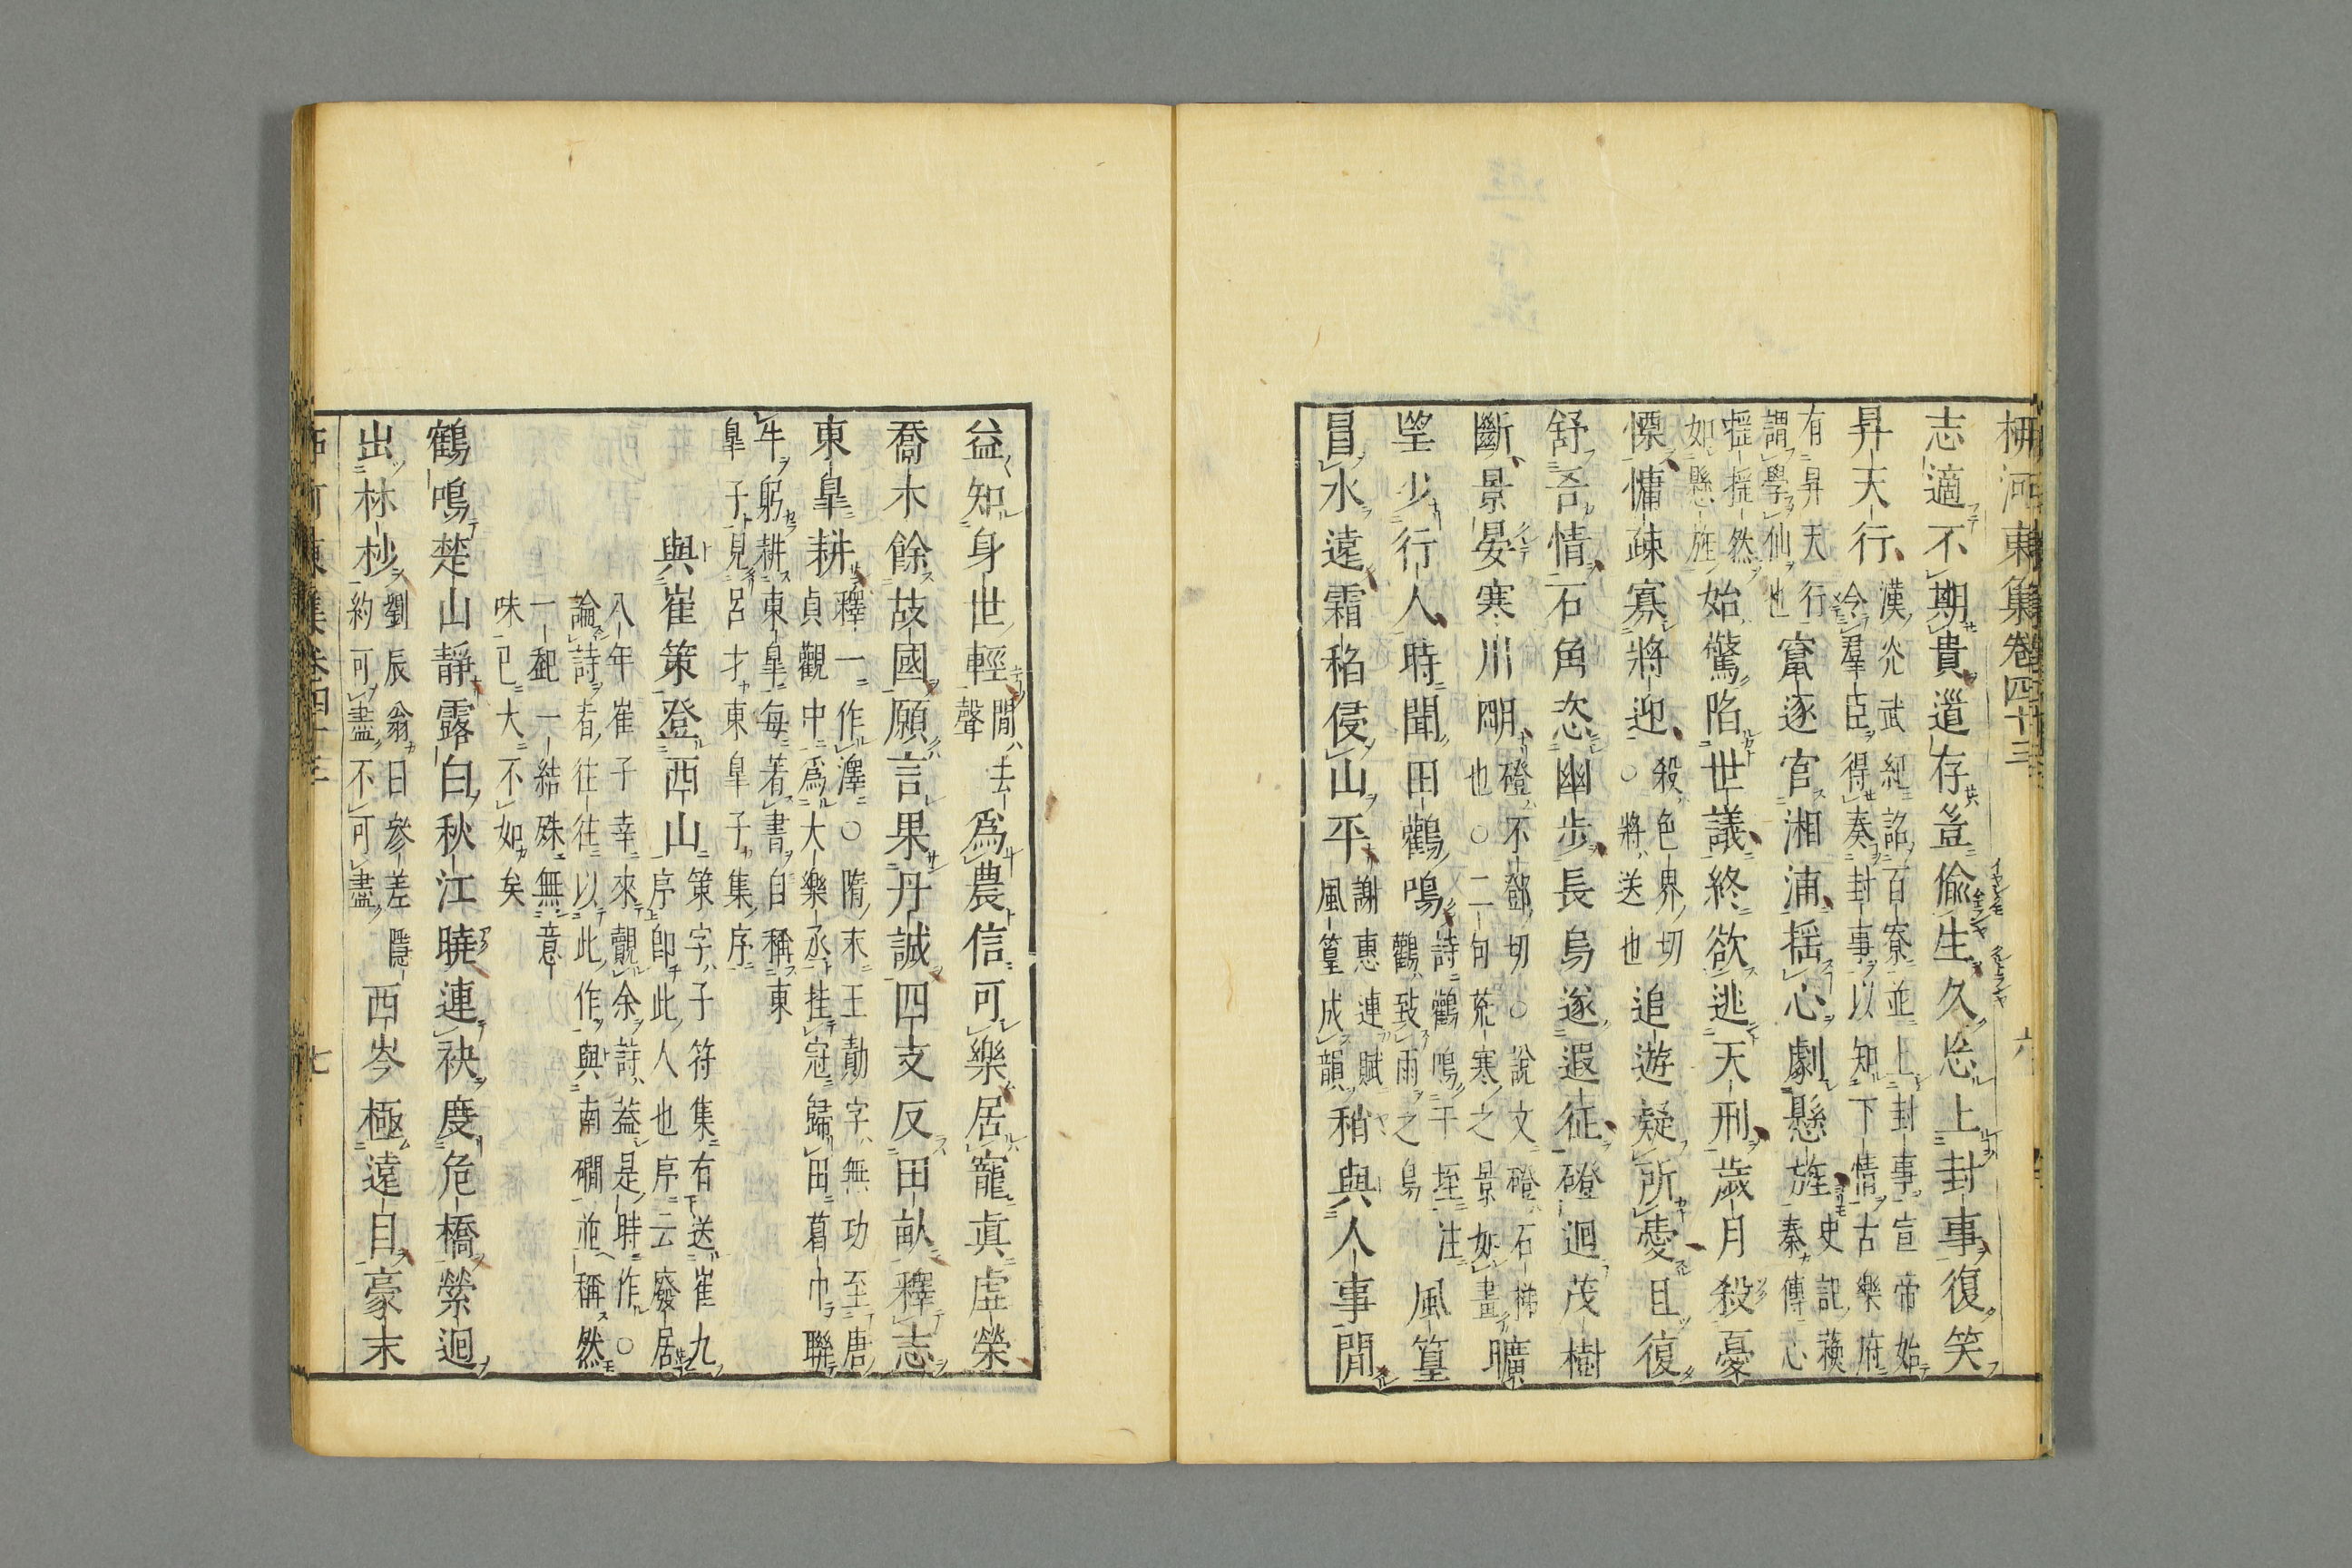 柳河東集卷四十三 六
志適不期貴道存豈偷生久忘上封事復笑
昇天行
漢光武紀詔百寮並上封事宣帝始
令羣臣得奏封事以知下情古樂府
有昇天行
謂學仙也
竄逐宦湘浦揺心劇懸旌
史記蘇
秦傳心
揺揺然
如懸旌
始驚陷世議終欲逃天刑歲月殺憂
慄慵疎寡將迎
殺色界切
○將送也
追遊疑所愛且復
舒吾情石角恣幽步長烏遂遐征磴迴茂樹
斷景晏寒川明
磴不鄧切○說文磴石梯
也○二句荒寒之景如畫
曠
望少行人時聞田鸛鳴
詩鸛鳴于垤注
鸛致雨之鳥
風篁
冒水遠霜稻侵山平
謝惠連賦
風篁成韻
稍與人事閒
益知身世輕
閒去
聲
爲農信可樂居寵真虛榮
喬木餘故國願言果丹誠四支反田畝釋志
東皐耕
釋一作澤○隋末王勣字無功至唐
貞觀中為大樂丞挂冠歸田葛巾聯
牛躬耕東皐每著書自稱東
皐子見呂才東皐子集序
與崔策登西山
策字子符集有送崔九
序即此人也序云廢居
八年崔子幸來覿余詩蓋是時作○
論詩者往往以此作與南磵並稱然
一紕一結殊無意
味已大不如矣
鶴鳴楚山靜露白秋江曉連袂度危橋縈迴
出林杪
劉辰翁曰參差隱
約可盡不可盡
西岑極遠目豪末
柳河東集卷四十三 七